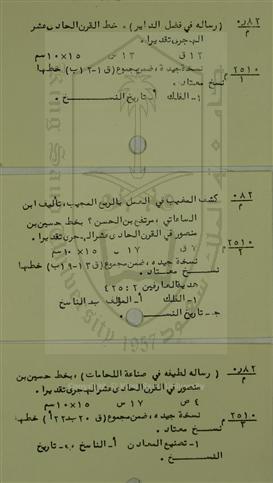 ٥٢٨٢ (رساله في فضل الدايـر) . خط القرن الحادى عشر
م الهـجرى تقديرا .
١٢ ق ١٣ س ١٥×١٠سم
٢٥١٠ نسخة جيدة، ضمن مجموع (ق ١-١٢ب) خطها
١ نسخ معتاد .
١- الفلك أ- تاريخ النسـخ .
٥٢٨ كشف المغيب في العمل بالربع المجيب، تأليف ابن
م الساعاتي، مرتفى بن الحسن ؟ بخط حسين بن
منصور في القرن الحادى عشر الهـجرى تقديرا .
٧ ق ١٧ س ١٥×١٠سم
٢٥١٠ نسخة جيده، ضمن مجموع (ق ١٣-١٩ب) خطها
٢ نسـخ معتاد .
هدية العارفين ٢ : ٤٢٥
١- الفلك أ- المؤلف ب- الناسخ
جـ- تاريخ النسـخ .
٥٢٨٢ (رساله لطيفه في صناعة اللحامات)، بخط حسين بن
م منصور في القرن الحادى عشر الهـجرى تقديرا .
٤ ص ١٧ س ١٥×١٠سم
٢٥١٠ نسخة جيد، ضمن مجموع (ق ٢٠ب-٢٢أ) خطها
٣ نسخ معتاد .
١- تصنيع المعادن أ- الناسخ ب- تاريخ
النسـخ .
1957